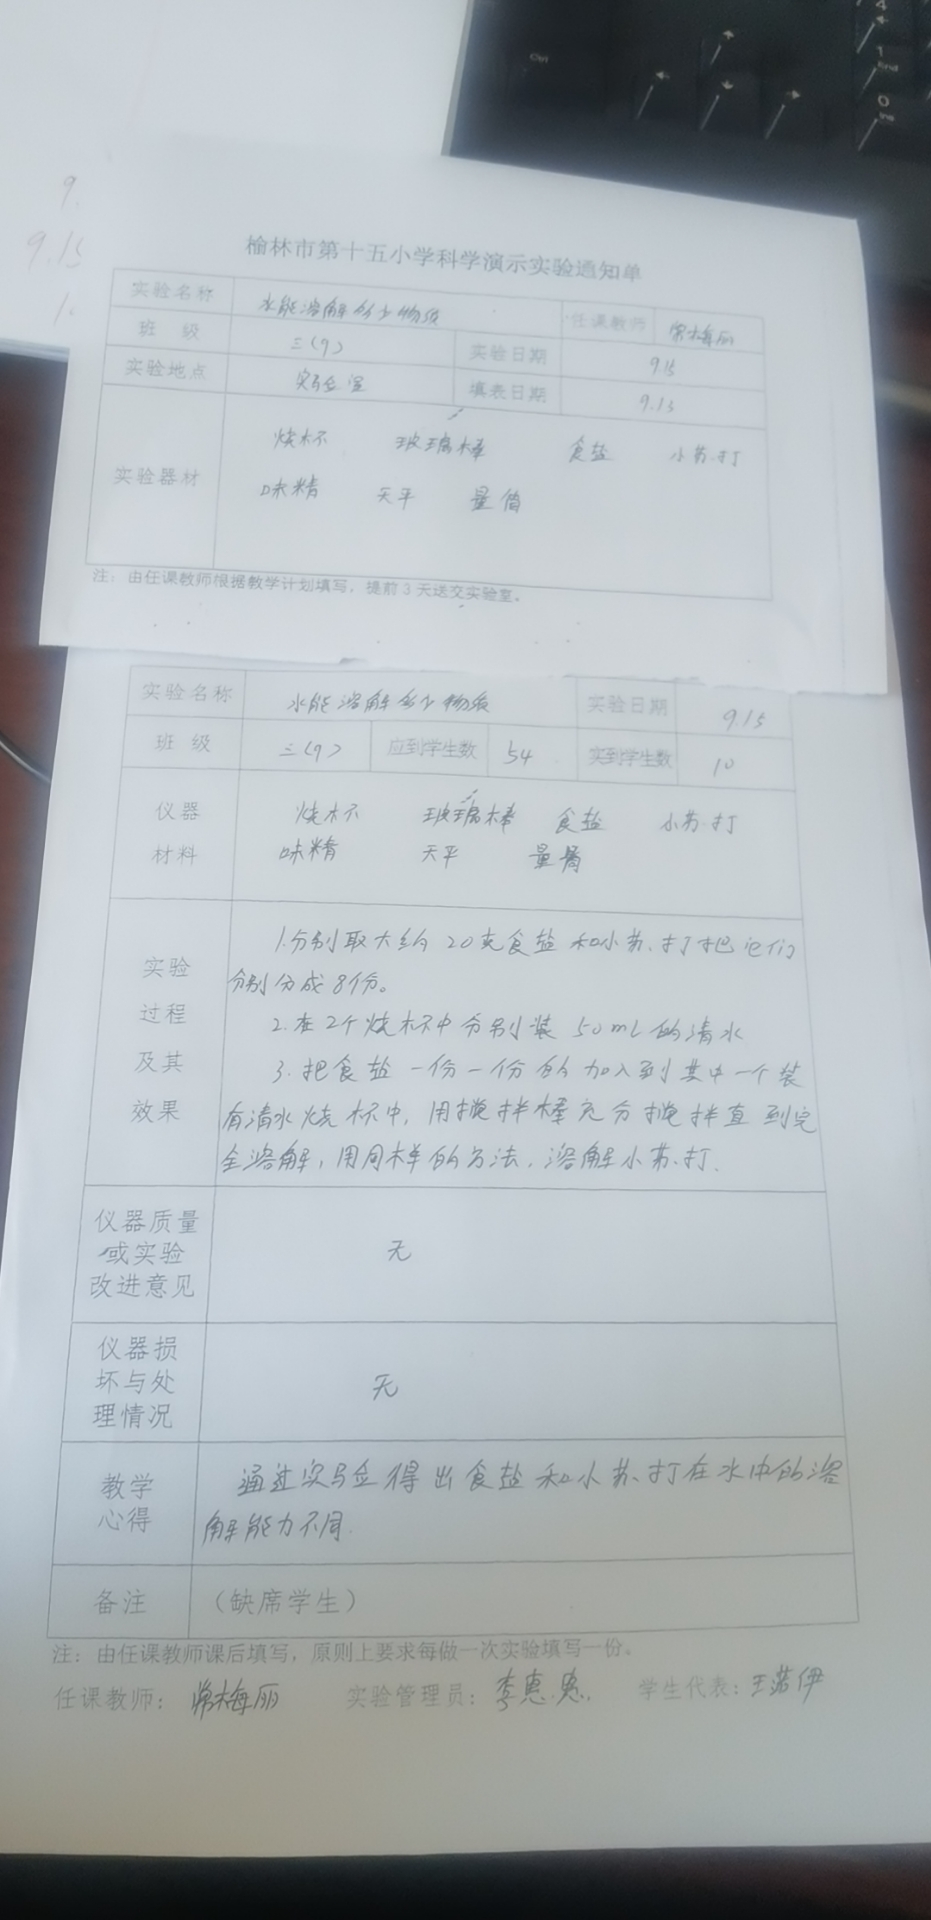 9.
9.15
1.
榆林市第十五小学科学演示实验通知单
实验名称 水能溶解多少物质 任课教师 常梅丽
班 级 三(9) 实验日期 9.15
实验地点 实验室 填表日期 9.13
实验器材 烧杯 玻璃棒 食盐 小苏打
味精 天平 量筒
注：由任课教师根据教学计划填写，提前3天送交实验室。
实验名称 水能溶解多少物质 实验日期 9.15
班 级 三(9) 应到学生数 54 实到学生数 10
仪器 烧杯 玻璃棒 食盐 小苏打
材料 味精 天平 量筒
实验过程及其效果
1.分别取大约20克食盐和小苏打把它们
分别分成8份。
2.在2个烧杯中分别装50mL的清水
3.把食盐一份一份的加入到其中一个装
有清水烧杯中，用搅拌棒充分搅拌直到完
全溶解，用同样的方法，溶解小苏打.
仪器质量
或实验 无
改进意见
仪器损
坏与处 无
理情况
教学 通过实验得出食盐和小苏打在水中的溶
心得 解能力不同.
备注 （缺席学生）
注：由任课教师课后填写，原则上要求每做一次实验填写一份。
任课教师：常梅丽 实验管理员：李惠惠. 学生代表：王若伊